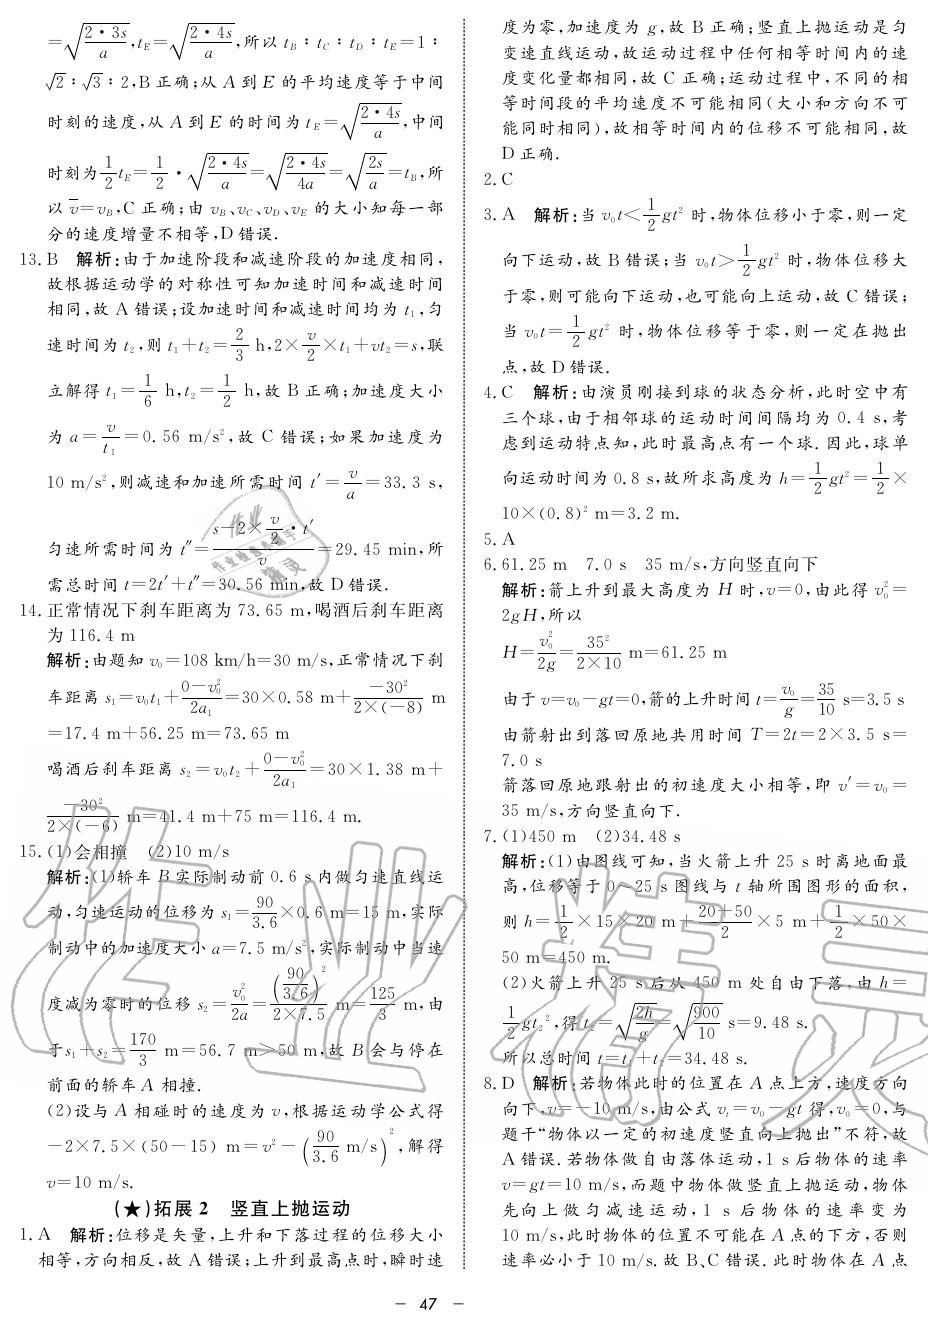 =√(2·3s/a),t_E=√(2·4s/a),所以 t_B：t_C：t_D：t_E=1：
√2：√3：2,B 正确;从 A 到 E 的平均速度等于中间
时刻的速度,从 A 到 E 的时间为 t_E=√(2·4s/a),中间
时刻为 1/2 t_E=1/2·√(2·4s/a)=√(2·4s/4a)=√(2s/a)=t_B,所
以 v̄=v_B,C 正确;由 v_B、v_C、v_D、v_E 的大小知每一部
分的速度增量不相等,D 错误.
13. B 解析:由于加速阶段和减速阶段的加速度相同,
故根据运动学的对称性可知加速时间和减速时间
相同,故 A 错误;设加速时间和减速时间均为 t₁,匀
速时间为 t₂,则 t₁+t₂=2/3 h,2×v/2×t₁+vt₂=s,联
立解得 t₁=1/6 h,t₂=1/2 h,故 B 正确;加速度大小
为 a=v/t₁=0.56 m/s²,故 C 错误;如果加速度为
10 m/s²,则减速和加速所需时间 t′=v/a=33.3 s,
匀速所需时间为 t″=(s-2×v/2·t′)/v=29.45 min,所
需总时间 t=2t′+t″=30.56 min,故 D 错误.
14. 正常情况下刹车距离为 73.65 m,喝酒后刹车距离
为 116.4 m
解析:由题知 v₀=108 km/h=30 m/s,正常情况下刹
车距离 s₁=v₀t₁+(0-v₀²)/2a₁=30×0.58 m+(-30²)/(2×(-8)) m
=17.4 m+56.25 m=73.65 m
喝酒后刹车距离 s₂=v₀t₂+(0-v₀²)/2a₁=30×1.38 m+
(-30²)/(2×(-6)) m=41.4 m+75 m=116.4 m.
15. (1)会相撞 (2)10 m/s
解析:(1)轿车 B 实际制动前 0.6 s 内做匀速直线运
动,匀速运动的位移为 s₁=90/3.6×0.6 m=15 m,实际
制动中的加速度大小 a=7.5 m/s²,实际制动中当速
度减为零时的位移 s₂=v₀²/2a=(90/3.6)²/(2×7.5) m=125/3 m,由
于s₁+s₂=170/3 m=56.7 m>50 m,故 B 会与停在
前面的轿车 A 相撞.
(2)设与 A 相碰时的速度为 v,根据运动学公式得
-2×7.5×(50-15) m=v²-(90/3.6 m/s)²,解得
v=10 m/s.
(★)拓展 2 竖直上抛运动
1. A 解析:位移是矢量,上升和下落过程的位移大小
相等,方向相反,故 A 错误;上升到最高点时,瞬时速
度为零,加速度为 g,故 B 正确;竖直上抛运动是匀
变速直线运动,故运动过程中任何相等时间内的速
度变化量都相同,故 C 正确;运动过程中,不同的相
等时间段的平均速度不可能相同(大小和方向不可
能同时相同),故相等时间内的位移不可能相同,故
D 正确.
2. C
3. A 解析:当 v₀t<1/2 gt² 时,物体位移小于零,则一定
向下运动,故 B 错误;当 v₀t>1/2 gt² 时,物体位移大
于零,则可能向下运动,也可能向上运动,故 C 错误;
当 v₀t=1/2 gt² 时,物体位移等于零,则一定在抛出
点,故 D 错误.
4. C 解析:由演员刚接到球的状态分析,此时空中有
三个球,由于相邻球的运动时间间隔均为 0.4 s,考
虑到运动特点知,此时最高点有一个球. 因此,球单
向运动时间为 0.8 s,故所求高度为 h=1/2 gt²=1/2×
10×(0.8)² m=3.2 m.
5. A
6. 61.25 m 7.0 s 35 m/s,方向竖直向下
解析:箭上升到最大高度为 H 时,v=0,由此得 v₀²=
2gH,所以
H=v₀²/2g=35²/(2×10) m=61.25 m
由于 v=v₀-gt=0,箭的上升时间 t=v₀/g=35/10 s=3.5 s
由箭射出到落回原地共用时间 T=2t=2×3.5 s=
7.0 s
箭落回原地跟射出的初速度大小相等,即 v′=v₀=
35 m/s,方向竖直向下.
7. (1)450 m (2)34.48 s
解析:(1)由图线可知,当火箭上升 25 s 时离地面最
高,位移等于 0~25 s 图线与 t 轴所围图形的面积,
则 h=1/2×15×20 m+(20+50)/2×5 m+1/2×50×
50 m=450 m.
(2)火箭上升 25 s 后从 450 m 处自由下落,由 h=
1/2 gt₂²,得 t₂=√(2h/g)=√(900/10) s=9.48 s.
所以总时间 t=t₁+t₂=34.48 s.
8. D 解析:若物体此时的位置在 A 点上方,速度方向
向下,v=-10 m/s,由公式 vₜ=v₀-gt 得,v₀=0,与
题干“物体以一定的初速度竖直向上抛出”不符,故
A 错误. 若物体做自由落体运动,1 s 后物体的速率
v=gt=10 m/s,而题中物体做竖直上抛运动,物体
先向上做匀减速运动,1 s 后物体的速率变为
10 m/s,此时物体的位置不可能在 A 点的下方,否则
速率必小于 10 m/s. 故 B、C 错误. 此时物体在 A 点
- 47 -
作业精灵